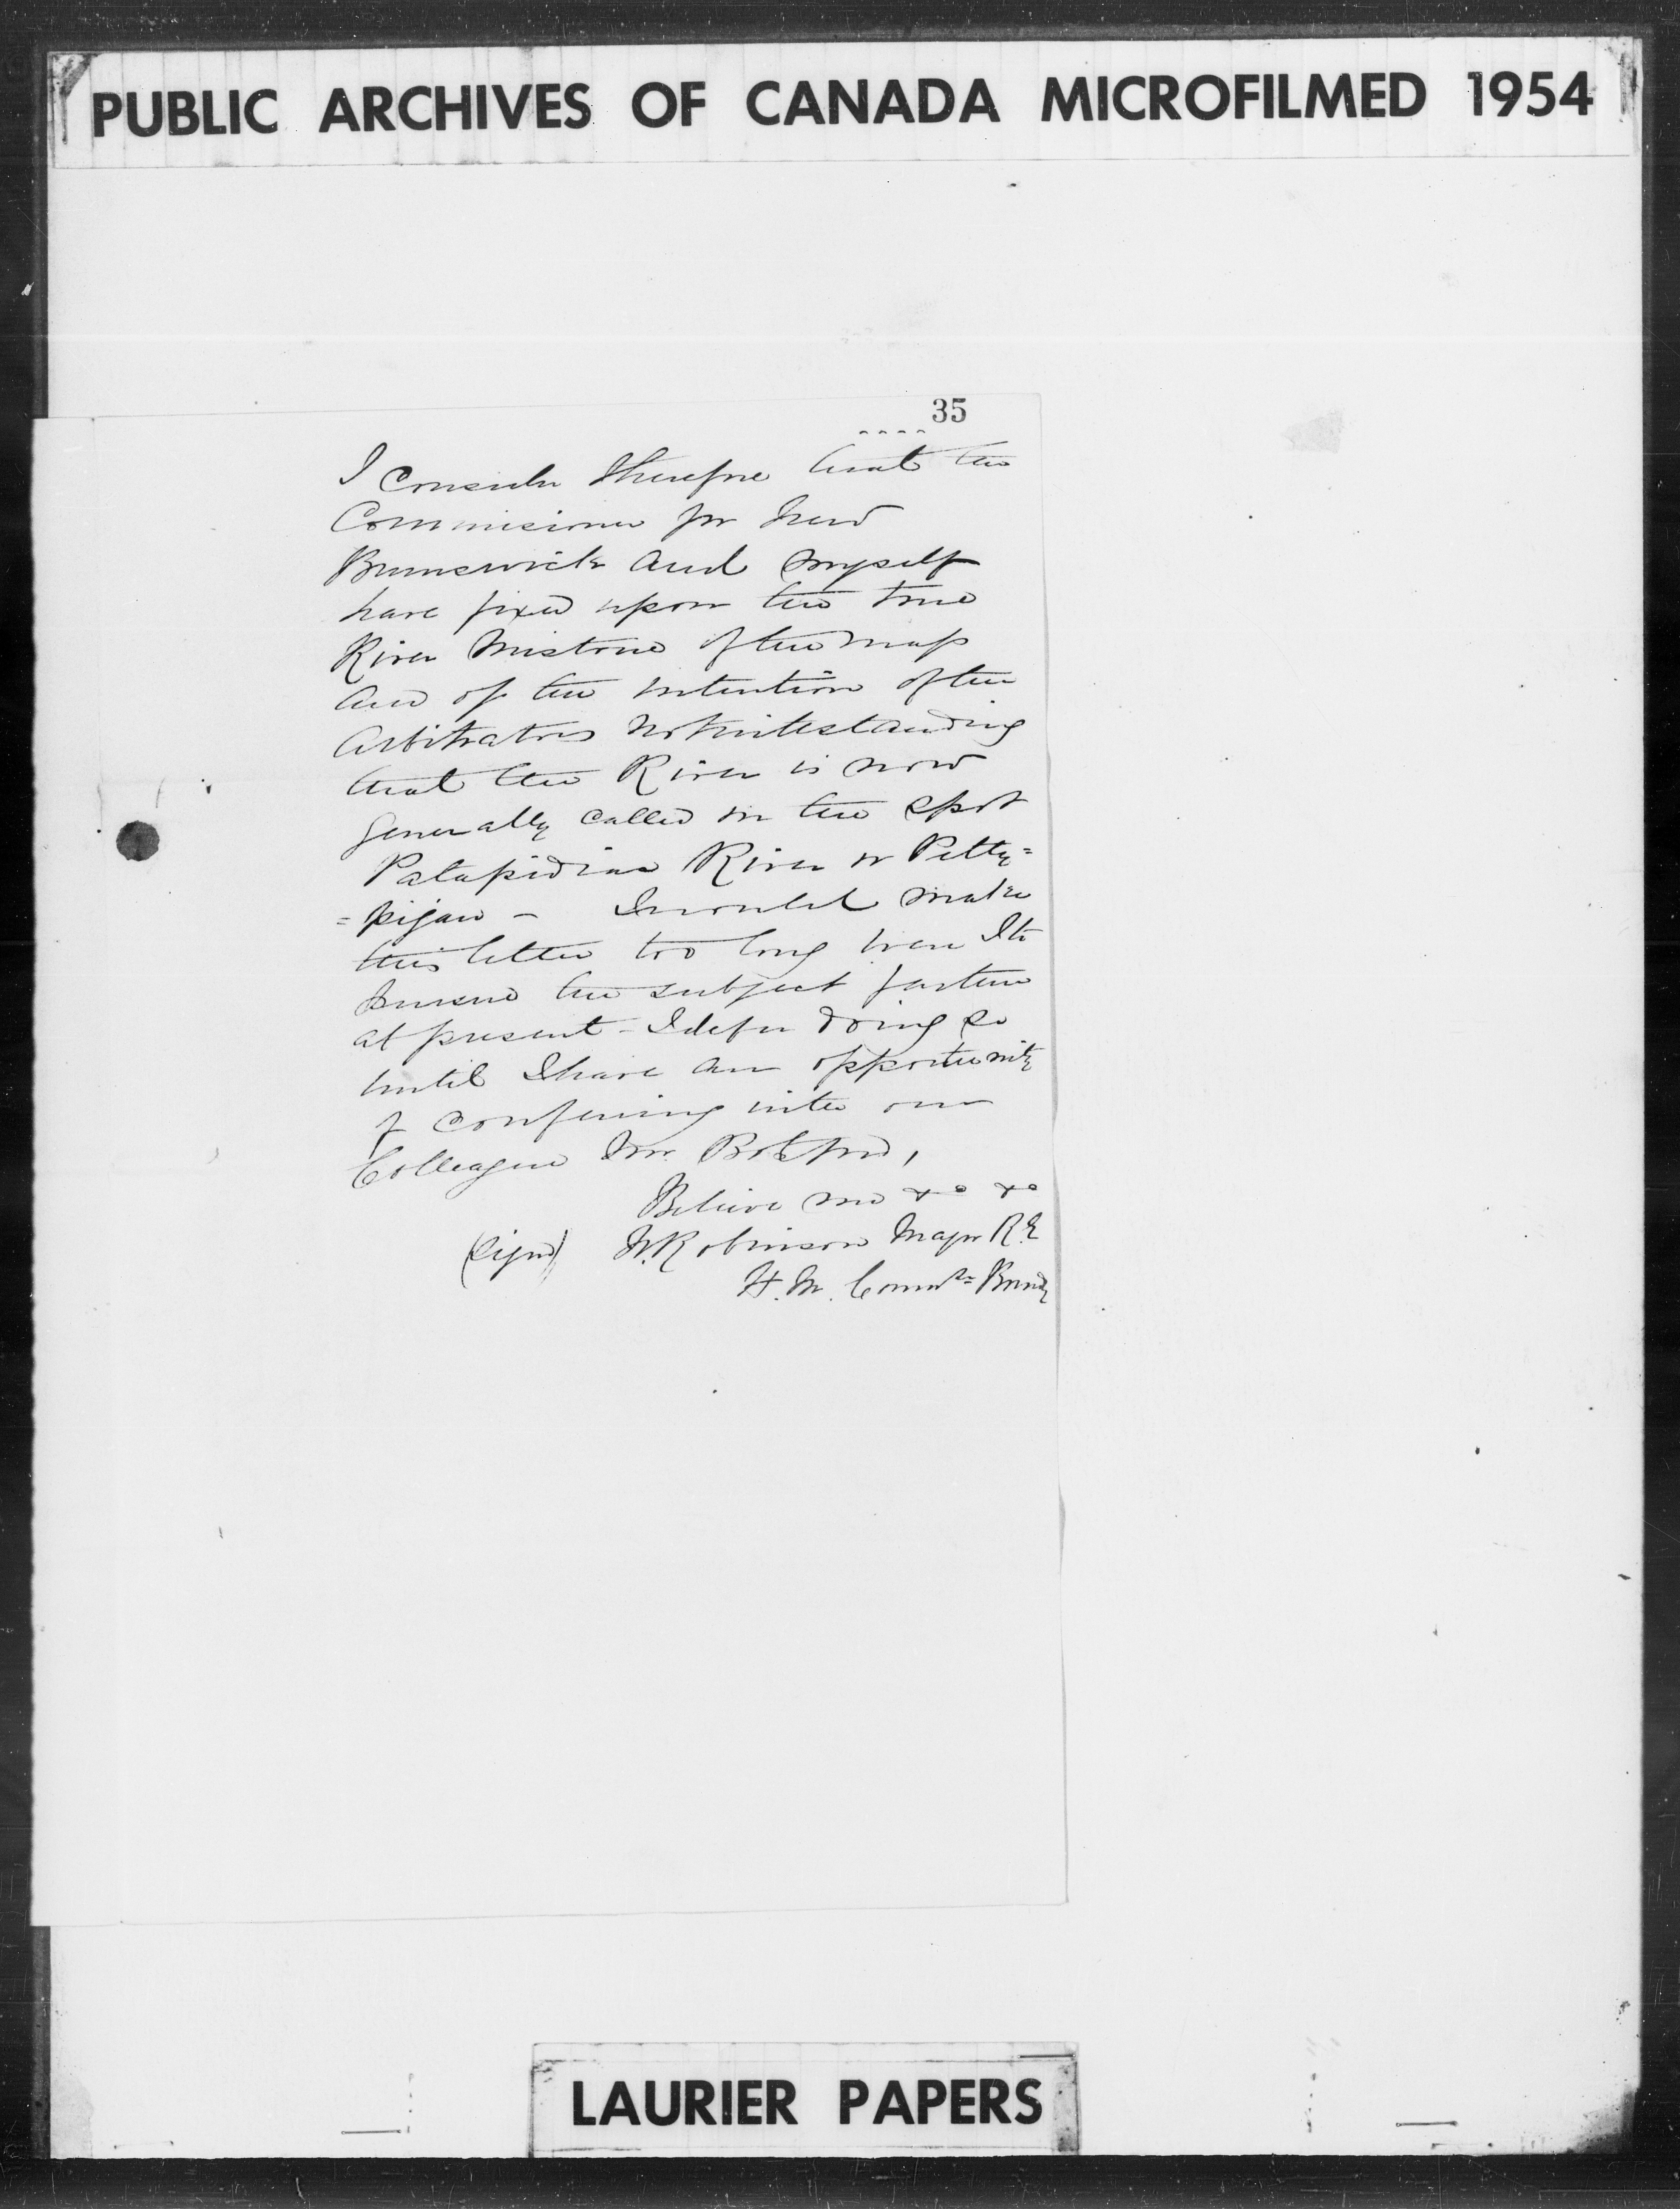 PUBLIC ARCHIVES OF CANADA MICROFILMED 1954
35
I Consider Therefore that the
Commissioner for New
Brunswick and myself
have fixed upon the true
River Mistouc of the map
and of the intention of the
Arbitrators notwithstanding
that the River is now
generally called on the spot
Patapidiac River or Petty=
=pigan - I would make
this letter too long were I to
pursue the subject further
at present - I defer doing so
until I have an opportunity
of conferring with our
Colleague Mr. Botsford,
Believe me &c &c
(Signd) W. Robinson Major R.E
H.M. Commr= Bound
LAURIER PAPERS